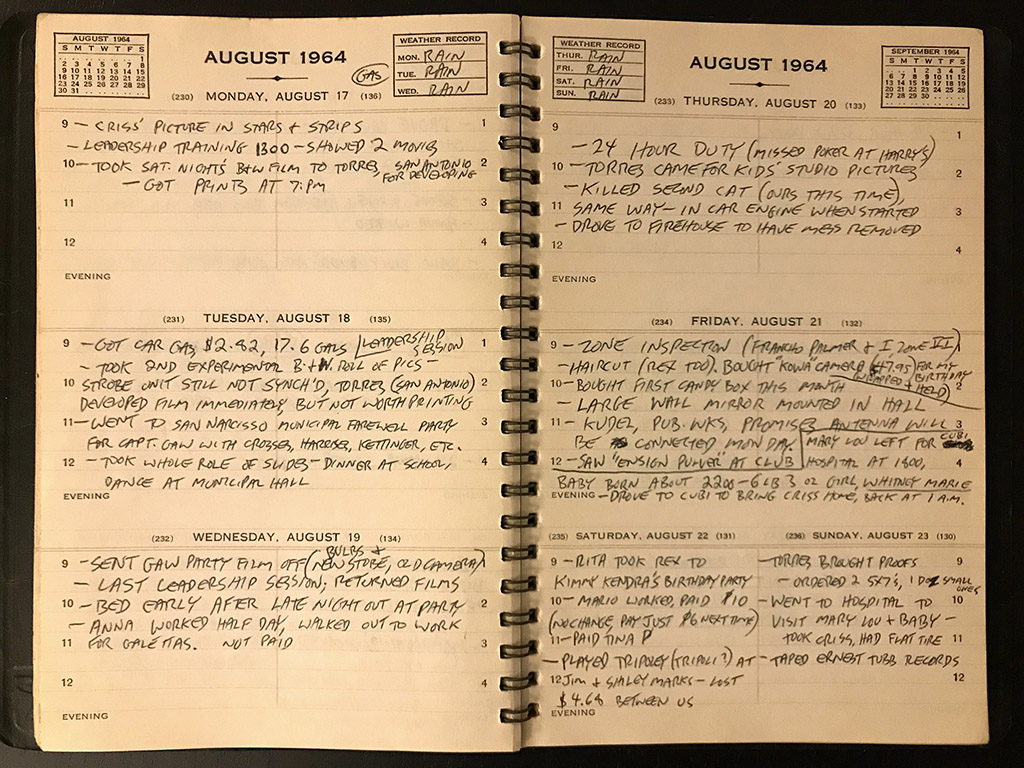 AUGUST 1964
S M T W T F S
1
2 3 4 5 6 7 8
9 10 11 12 13 14 15
16 17 18 19 20 21 22
23 24 25 26 27 28 29
30 31
AUGUST 1964
WEATHER RECORD
MON. RAIN
TUE. RAIN
WED. RAIN
GAS
(230) MONDAY, AUGUST 17 (136)
9 – CRISS' PICTURE IN STARS & STRIPS 1
– LEADERSHIP TRAINING 1300 – SHOWED 2 MOVIES
10 – TOOK SAT. NIGHT'S B+W FILM TO TORRES, SAN ANTONIO 2
FOR DEVELOPING
– GOT PRINTS AT 7:PM
11 3
12 4
EVENING
(231) TUESDAY, AUGUST 18 (135)
9 – GOT CAR GAS, $2.82, 17.6 GALS LEADERSHIP SESSION 1
– TOOK 2ND EXPERIMENTAL B.+W. ROLL OF PICS –
10 – STROBE UNIT STILL NOT SYNCH'D, TORRES (SAN ANTONIO) 2
DEVELOPED FILM IMMEDIATELY, BUT NOT WORTH PRINTING
11 – WENT TO SAN NARCISSO MUNICIPAL FAREWELL PARTY 3
FOR CAPT. GAW WITH CROSSES, HARROSES, KETTINGER, ETC.
12 – TOOK WHOLE ROLE OF SLIDES – DINNER AT SCHOOL, 4
DANCE AT MUNICIPAL HALL
EVENING
(232) WEDNESDAY, AUGUST 19 (134)
BULBS &
9 – SENT GAW PARTY FILM OFF (NEW STOBE, OLD CAMERA) 1
– LAST LEADERSHIP SESSION; RETURNED FILMS
10 – BED EARLY AFTER LATE NIGHT OUT AT PARTY 2
– ANNA WORKED HALF DAY, WALKED OUT TO WORK
11 FOR GALETAS. NOT PAID 3
12 4
EVENING
WEATHER RECORD
THUR. RAIN
FRI. RAIN
SAT. RAIN
SUN. RAIN
AUGUST 1964
SEPTEMBER 1964
S M T W T F S
1 2 3 4 5
6 7 8 9 10 11 12
13 14 15 16 17 18 19
20 21 22 23 24 25 26
27 28 29 30
(233) THURSDAY, AUGUST 20 (133)
9 1
– 24 HOUR DUTY (MISSED POKER AT HARRY'S)
10 – TORRES CAME FOR KIDS' STUDIO PICTURES 2
– KILLED SECOND CAT (OURS THIS TIME),
11 SAME WAY – IN CAR ENGINE WHEN STARTED 3
– DROVE TO FIREHOUSE TO HAVE MESS REMOVED
12 4
EVENING
(234) FRIDAY, AUGUST 21 (132)
9 – ZONE INSPECTION (FRANCHO PALMER & I, ZONE VI) 1
– HAIRCUT (REX TOO), BOUGHT "KOWA" CAMERA ($47.95) FOR MY BIRTHDAY
(WRAPPED & HELD)
10 – BOUGHT FIRST CANDY BOX THIS MONTH 2
– LARGE WALL MIRROR MOUNTED IN HALL
11 – KUDEL, PUB. WKS, PROMISES ANTENNA WILL 3
BE CONNECTED MONDAY. MARY LOU LEFT FOR CUBI
12 – SAW "ENSIGN PULVER" AT CLUB HOSPITAL AT 1800, 4
BABY BORN ABOUT 2200 – 6 LB 3 OZ GIRL, WHITNEY MARIE
EVENING – DROVE TO CUBI TO BRING CRISS HOME, BACK AT 1 A.M.
(235) SATURDAY, AUGUST 22 (131)
9 – RITA TOOK REX TO
KIMMY KENDRA'S BIRTHDAY PARTY
10 – MARIO WORKED, PAID $10
(NO CHANGE, PAY JUST $6 NEXT TIME)
11 – PAID TINA P
– PLAYED TRIPOLEY (TRIPOLI?) AT
12 JIM & SHALEY MARKS – LOST
$4.68 BETWEEN US
EVENING
(236) SUNDAY, AUGUST 23 (130)
– TORRES BROUGHT PROOFS 9
– ORDERED 2 5X7'S, 1 DOZ SMALL ONES
– WENT TO HOSPITAL TO 10
VISIT MARY LOU + BABY –
TOOK CRISS, HAD FLAT TIRE 11
– TAPED ERNEST TUBB RECORDS
12